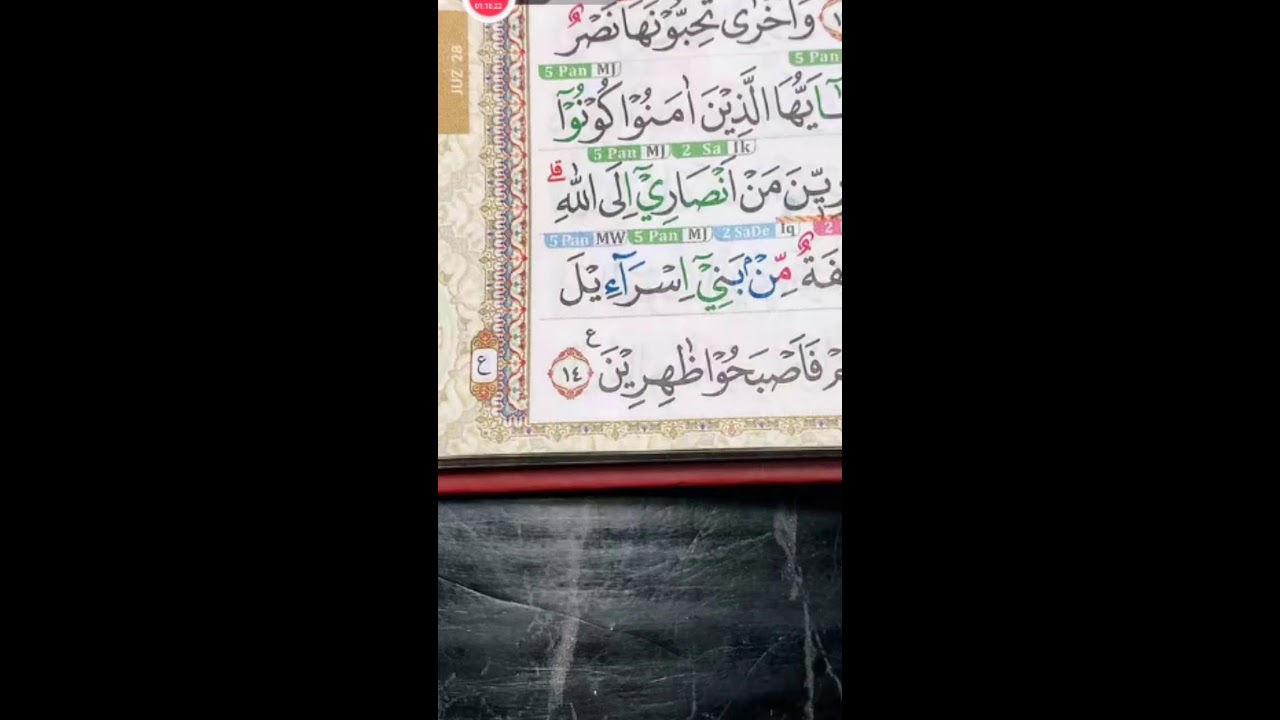 01:18:22
JUZ 28
وَاُخْرٰى تُحِبُّوْنَهَا نَصْرٌ
5 Pan MJ 5 Pan
يٰٓاَيُّهَا الَّذِيْنَ اٰمَنُوْا كُوْنُوْٓا
5 Pan MJ 2 Sa Ik
مَنْ اَنْصَارِيْٓ اِلَى اللّٰهِ ۗ
5 Pan MW 5 Pan MJ 2 SaDe Iq 2
مِّنْۢ بَنِيْٓ اِسْرَاۤءِيْلَ
فَاَصْبَحُوْا ظٰهِرِيْنَ ࣖ ١٤
ع